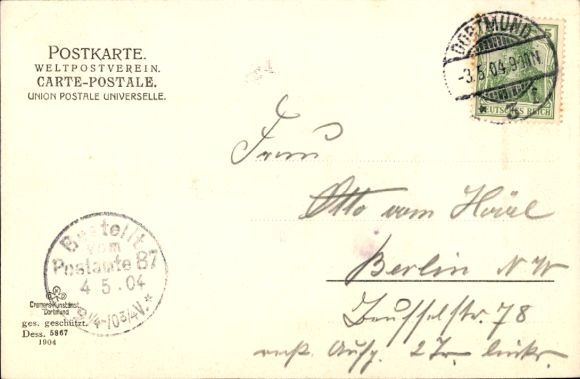 POSTKARTE.
WELTPOSTVEREIN.
CARTE-POSTALE.
UNION POSTALE UNIVERSELLE.
DORTMUND
-3.5.04.9-10N
* 3 f
DEUTSCHES REICH
Otto vom
Berlin N W
Beusselstr. 78
2 Tr. links
Bestellt
vom
Postamte 87
4 5.04
9 1/4-10 3/4 V. *
Cremers Kunstanst.
Dortmund
ges. geschützt.
Dess. 5867
1904